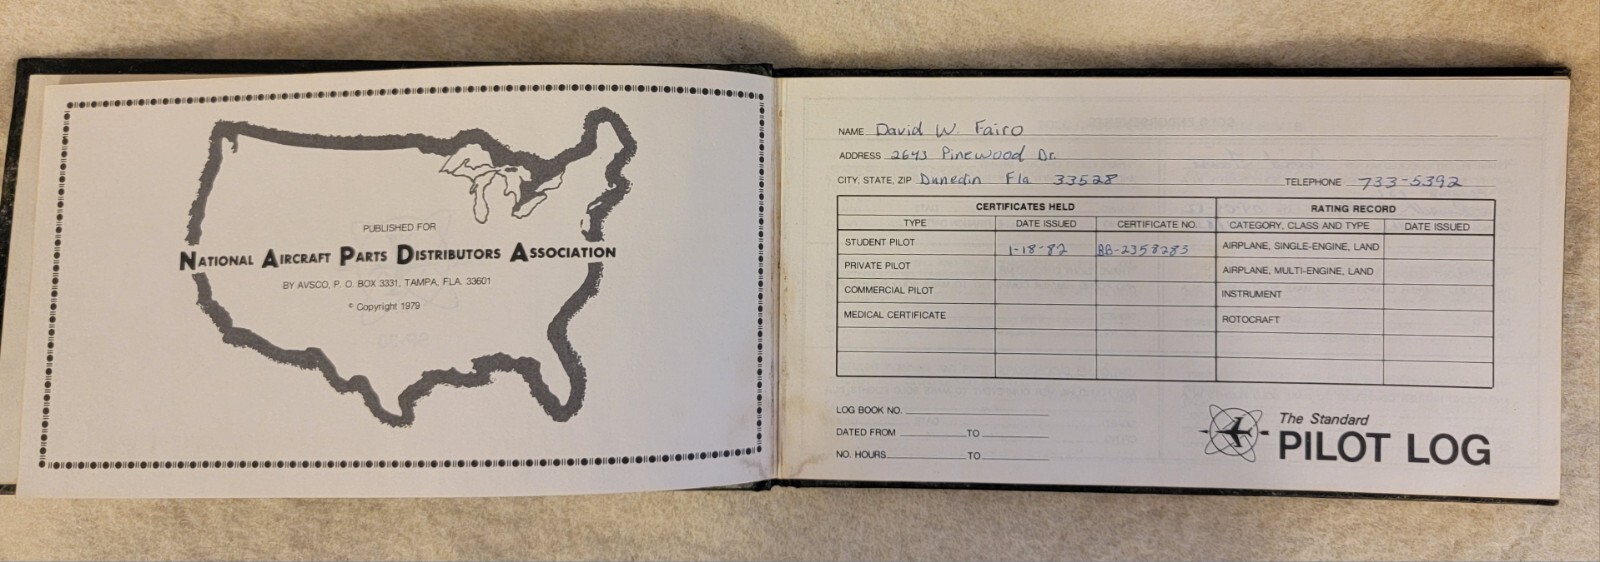 PUBLISHED FOR
NATIONAL AIRCRAFT PARTS DISTRIBUTORS ASSOCIATION
BY AVSCO, P. O. BOX 3331, TAMPA, FLA. 33601
© Copyright 1979
NAME David W. Fairo
ADDRESS 2643 Pinewood Dr.
CITY, STATE, ZIP Dunedin Fla 33528 TELEPHONE 733-5392
CERTIFICATES HELD RATING RECORD
TYPE DATE ISSUED CERTIFICATE NO. CATEGORY, CLASS AND TYPE DATE ISSUED
STUDENT PILOT 1-18-82 BB-2358283 AIRPLANE, SINGLE-ENGINE, LAND
PRIVATE PILOT AIRPLANE, MULTI-ENGINE, LAND
COMMERCIAL PILOT INSTRUMENT
MEDICAL CERTIFICATE ROTOCRAFT
LOG BOOK NO.
DATED FROM TO
NO. HOURS TO
The Standard
PILOT LOG